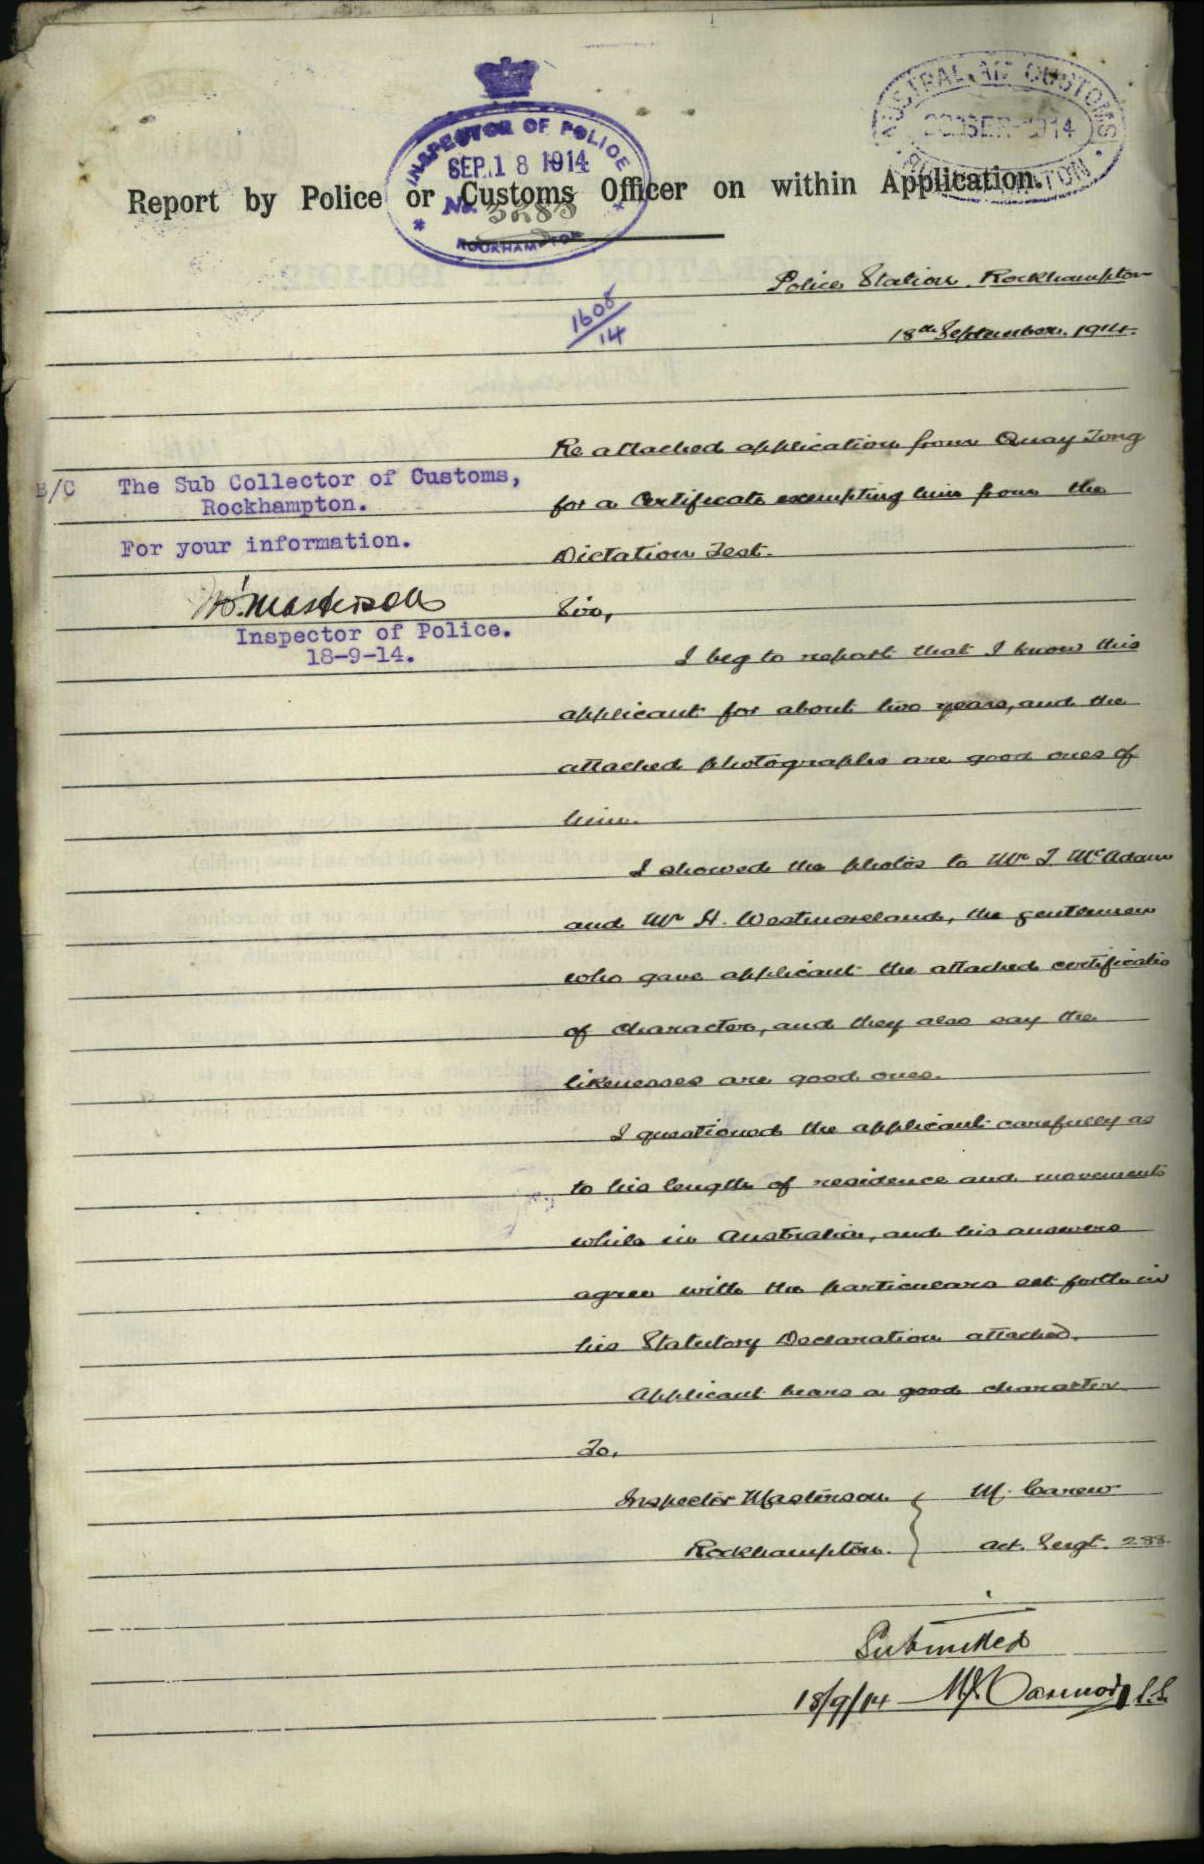 INSPECTOR OF POLICE
SEP. 18 1914
No. 3283
ROCKHAMPTON
AUSTRALIAN CUSTOMS
SEP 1914
Report by Police or Customs Officer on within Application.
Police Station, Rockhampton
1605/14
18th September. 1914.
Re attached application from Quay Tong
for a Certificate exempting him from the
Dictation Test.
B/C The Sub Collector of Customs,
Rockhampton.
For your information.
Masterson
Inspector of Police.
18-9-14.
Sir,
I beg to report that I know this
applicant for about two years, and the
attached photographs are good ones of
him.
I showed the photos to Mr J McAdam
and Mr H. Westmoreland, the gentlemen
who gave applicant the attached certificates
of character, and they also say the
likenesses are good ones.
I questioned the applicant carefully as
to his length of residence and movements
while in Australia, and his answers
agree with the particulars set forth in
his Statutory Declaration attached.
Applicant bears a good character
To,
Inspector Masterson } M. Carew
Rockhampton. Act. Sergt. 288.
Submitted
18/9/14